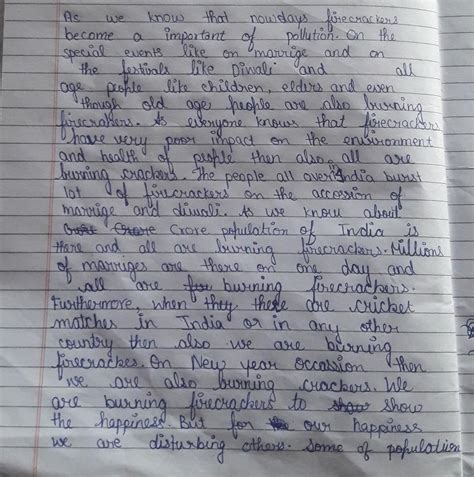 As we know that nowdays firecrackers
become a important of pollution. On the
special events like on marrige and on
the festivals like Diwali and all
age people like children, elders and even
though old age people are also burning
firecrackers. As everyone knows that firecrackers
have very poor impact on the environment
and health of people then also all are
burning crackers. The people all over India burst
lot of firecrackers on the accession of
marrige and diwali. As we know about
Crore Crore population of India is
there and all are burning firecrackers. Millions
of marriges are there on one day and
all are burning firecrackers.
Furthermore, when they there are cricket
matches in India or in any other
country then also we are burning
firecracker. On New year occassion then
we are also burning crackers. We
are burning firecrackers to show show
the happiness. But for our happiness
we are disturbing others. Some of population